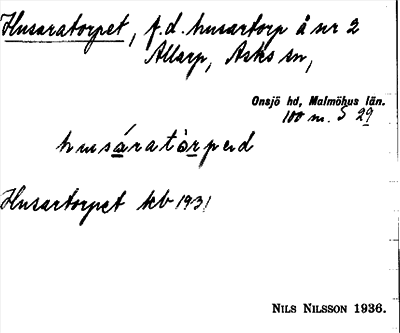 Husaratorpet, f.d. husartorp å nr 2
Allarp, Asks sn,
Onsjö hd, Malmöhus län.
100 m. S 29
husáratòrpəd
Husartorpet kb 1931
NILS NILSSON 1936.